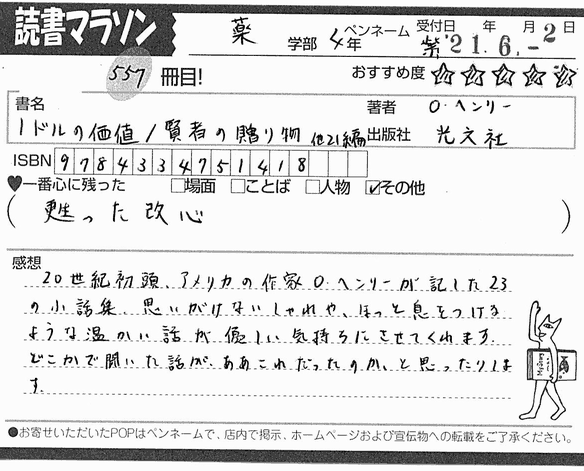 読書マラソン
薬 学部 4年
ペンネーム 紫
受付日 年 月 日
'21.6.-2
557冊目!
おすすめ度 ☆☆☆☆☆
書名
1ドルの価値/賢者の贈り物 他21編
著者 O・ヘンリー
出版社 光文社
ISBN 9784334751418
♥一番心に残った □場面 □ことば □人物 ☑その他
(甦った改心)
感想
20世紀初頭、アメリカの作家O・ヘンリーが記した23
の小話集。思いがけないしゃれや、ほっと息をつける
ような温かい話が優しい気持ちにさせてくれます。
どこかで聞いた話が、ああこれだったのか、と思ったりしま
す。
●お寄せいただいたPOPはペンネームで、店内で掲示、ホームページおよび宣伝物への転載をご了承ください。